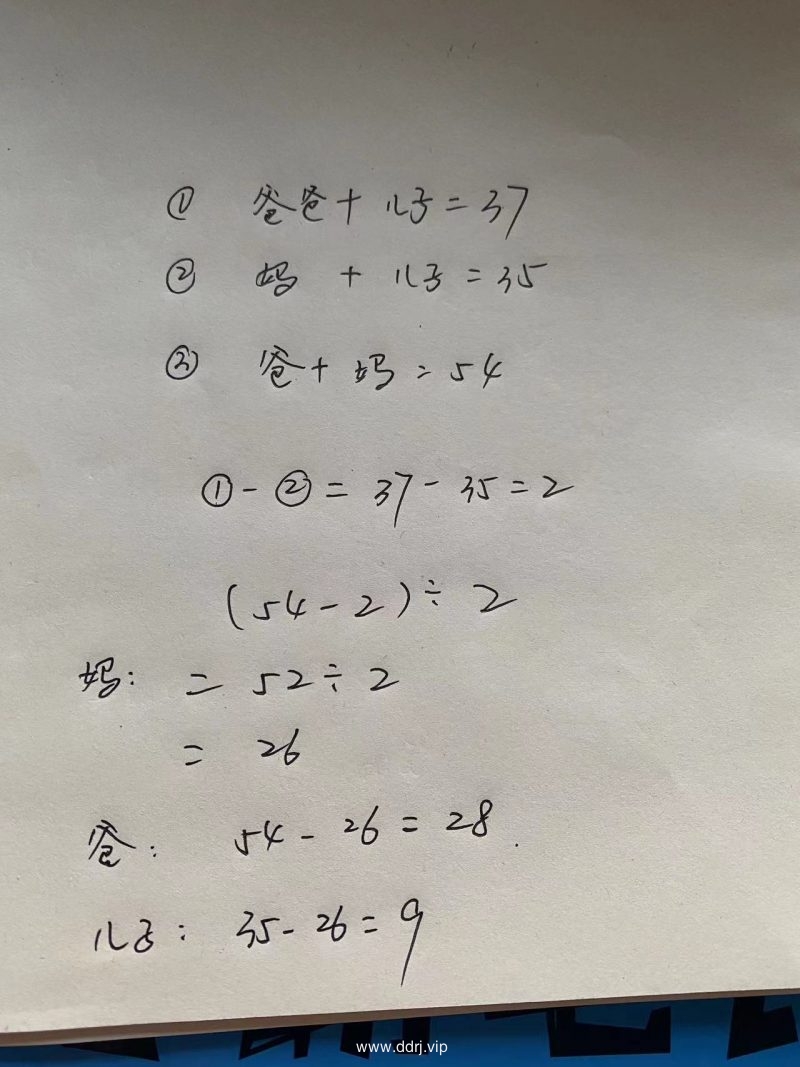 ① 爸爸+儿子=37
② 妈 + 儿子=35
③ 爸+妈=54
①-②=37-35=2
(54-2)÷2
妈: =52÷2
=26
爸: 54-26=28.
儿子: 35-26=9
www.ddrj.vip